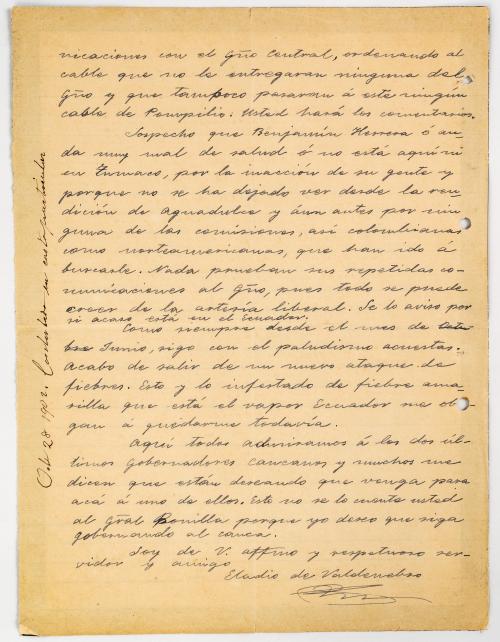 nicaciones con el Gño Central, ordenando al
cable que no le entregaran ninguna del
Gño y que tampoco pasaran á este ningún
cable de Pompilio. Usted hará los comentarios.
Sospecho que Benjamín Herrera ó an-
da muy mal de salud ó no está aquí ni
en Tumaco, por la inacción de su gente y
porque no se ha dejado ver desde la ren-
dición de Aguadulce y áun antes por nin
guna de las comisiones, así colombianas
como norteamericanas, que han ido á
buscarle. Nada prueban sus repetidas co-
municaciones al Gño, pues todo se puede
creer de la artería liberal. Se lo aviso por
si acaso está en el Ecuador.
Como siempre desde el mes de
Junio, sigo con el paludismo acuestas.
Acabo de salir de un nuevo ataque de
fiebres. Esto y lo infestado de fiebre ama-
rilla que está el vapor Ecuador me obli-
gan á quedarme todavía.
Aquí todos admiramos á los dos úl-
timos gobernadores caucanos y muchos me
dicen que están deseando que venga para
acá á uno de ellos. Esto no se lo cuente usted
al Gral Bonilla porque yo deseo que siga
gobernando al Cauca.
Soy de V. affmo y respetuoso ser-
vidor y amigo
Eladio de Valdenebro
Oct 28 1902. Contestado en carta particular